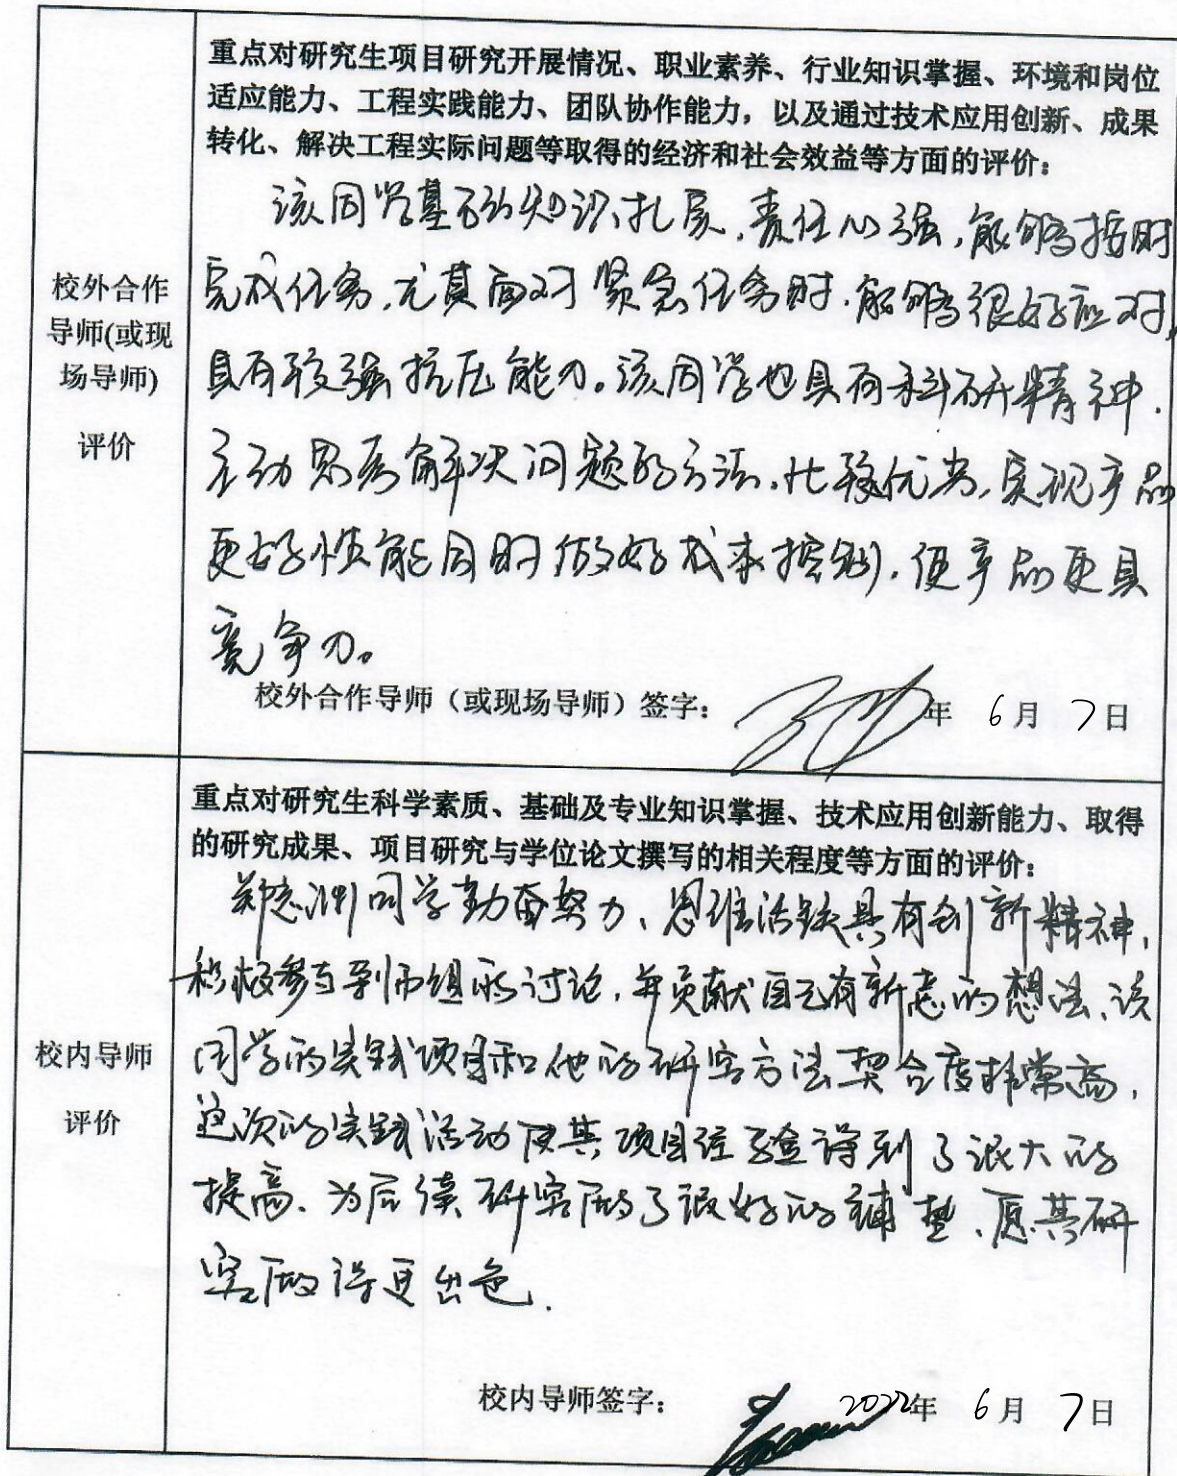 重点对研究生项目研究开展情况、职业素养、行业知识掌握、环境和岗位
适应能力、工程实践能力、团队协作能力，以及通过技术应用创新、成果
转化、解决工程实际问题等取得的经济和社会效益等方面的评价：
该同学基础知识扎实，责任心强，能够按时
完成任务，尤其面对紧急任务时，能够很好应对，
具有较强抗压能力。该同学也具有科研精神，
主动思考解决问题的方法，比较优劣，实现产品
更好性能同时做好成本控制，使产品更具
竞争力。
校外合作
导师(或现
场导师)
评价
校外合作导师（或现场导师）签字：
年 6月 7日
重点对研究生科学素质、基础及专业知识掌握、技术应用创新能力、取得
的研究成果、项目研究与学位论文撰写的相关程度等方面的评价：
同学勤奋努力、思维活跃具有创新精神，
积极参与到师组的讨论，并贡献自己有新意的想法、该
同学的实践项目和他的研究方法契合度非常高，
这次的实践活动使其项目经验得到了很大的
提高、为后续研究做了很好的铺垫、愿其研
究做得更出色.
校内导师
评价
校内导师签字：
2022年 6月 7日